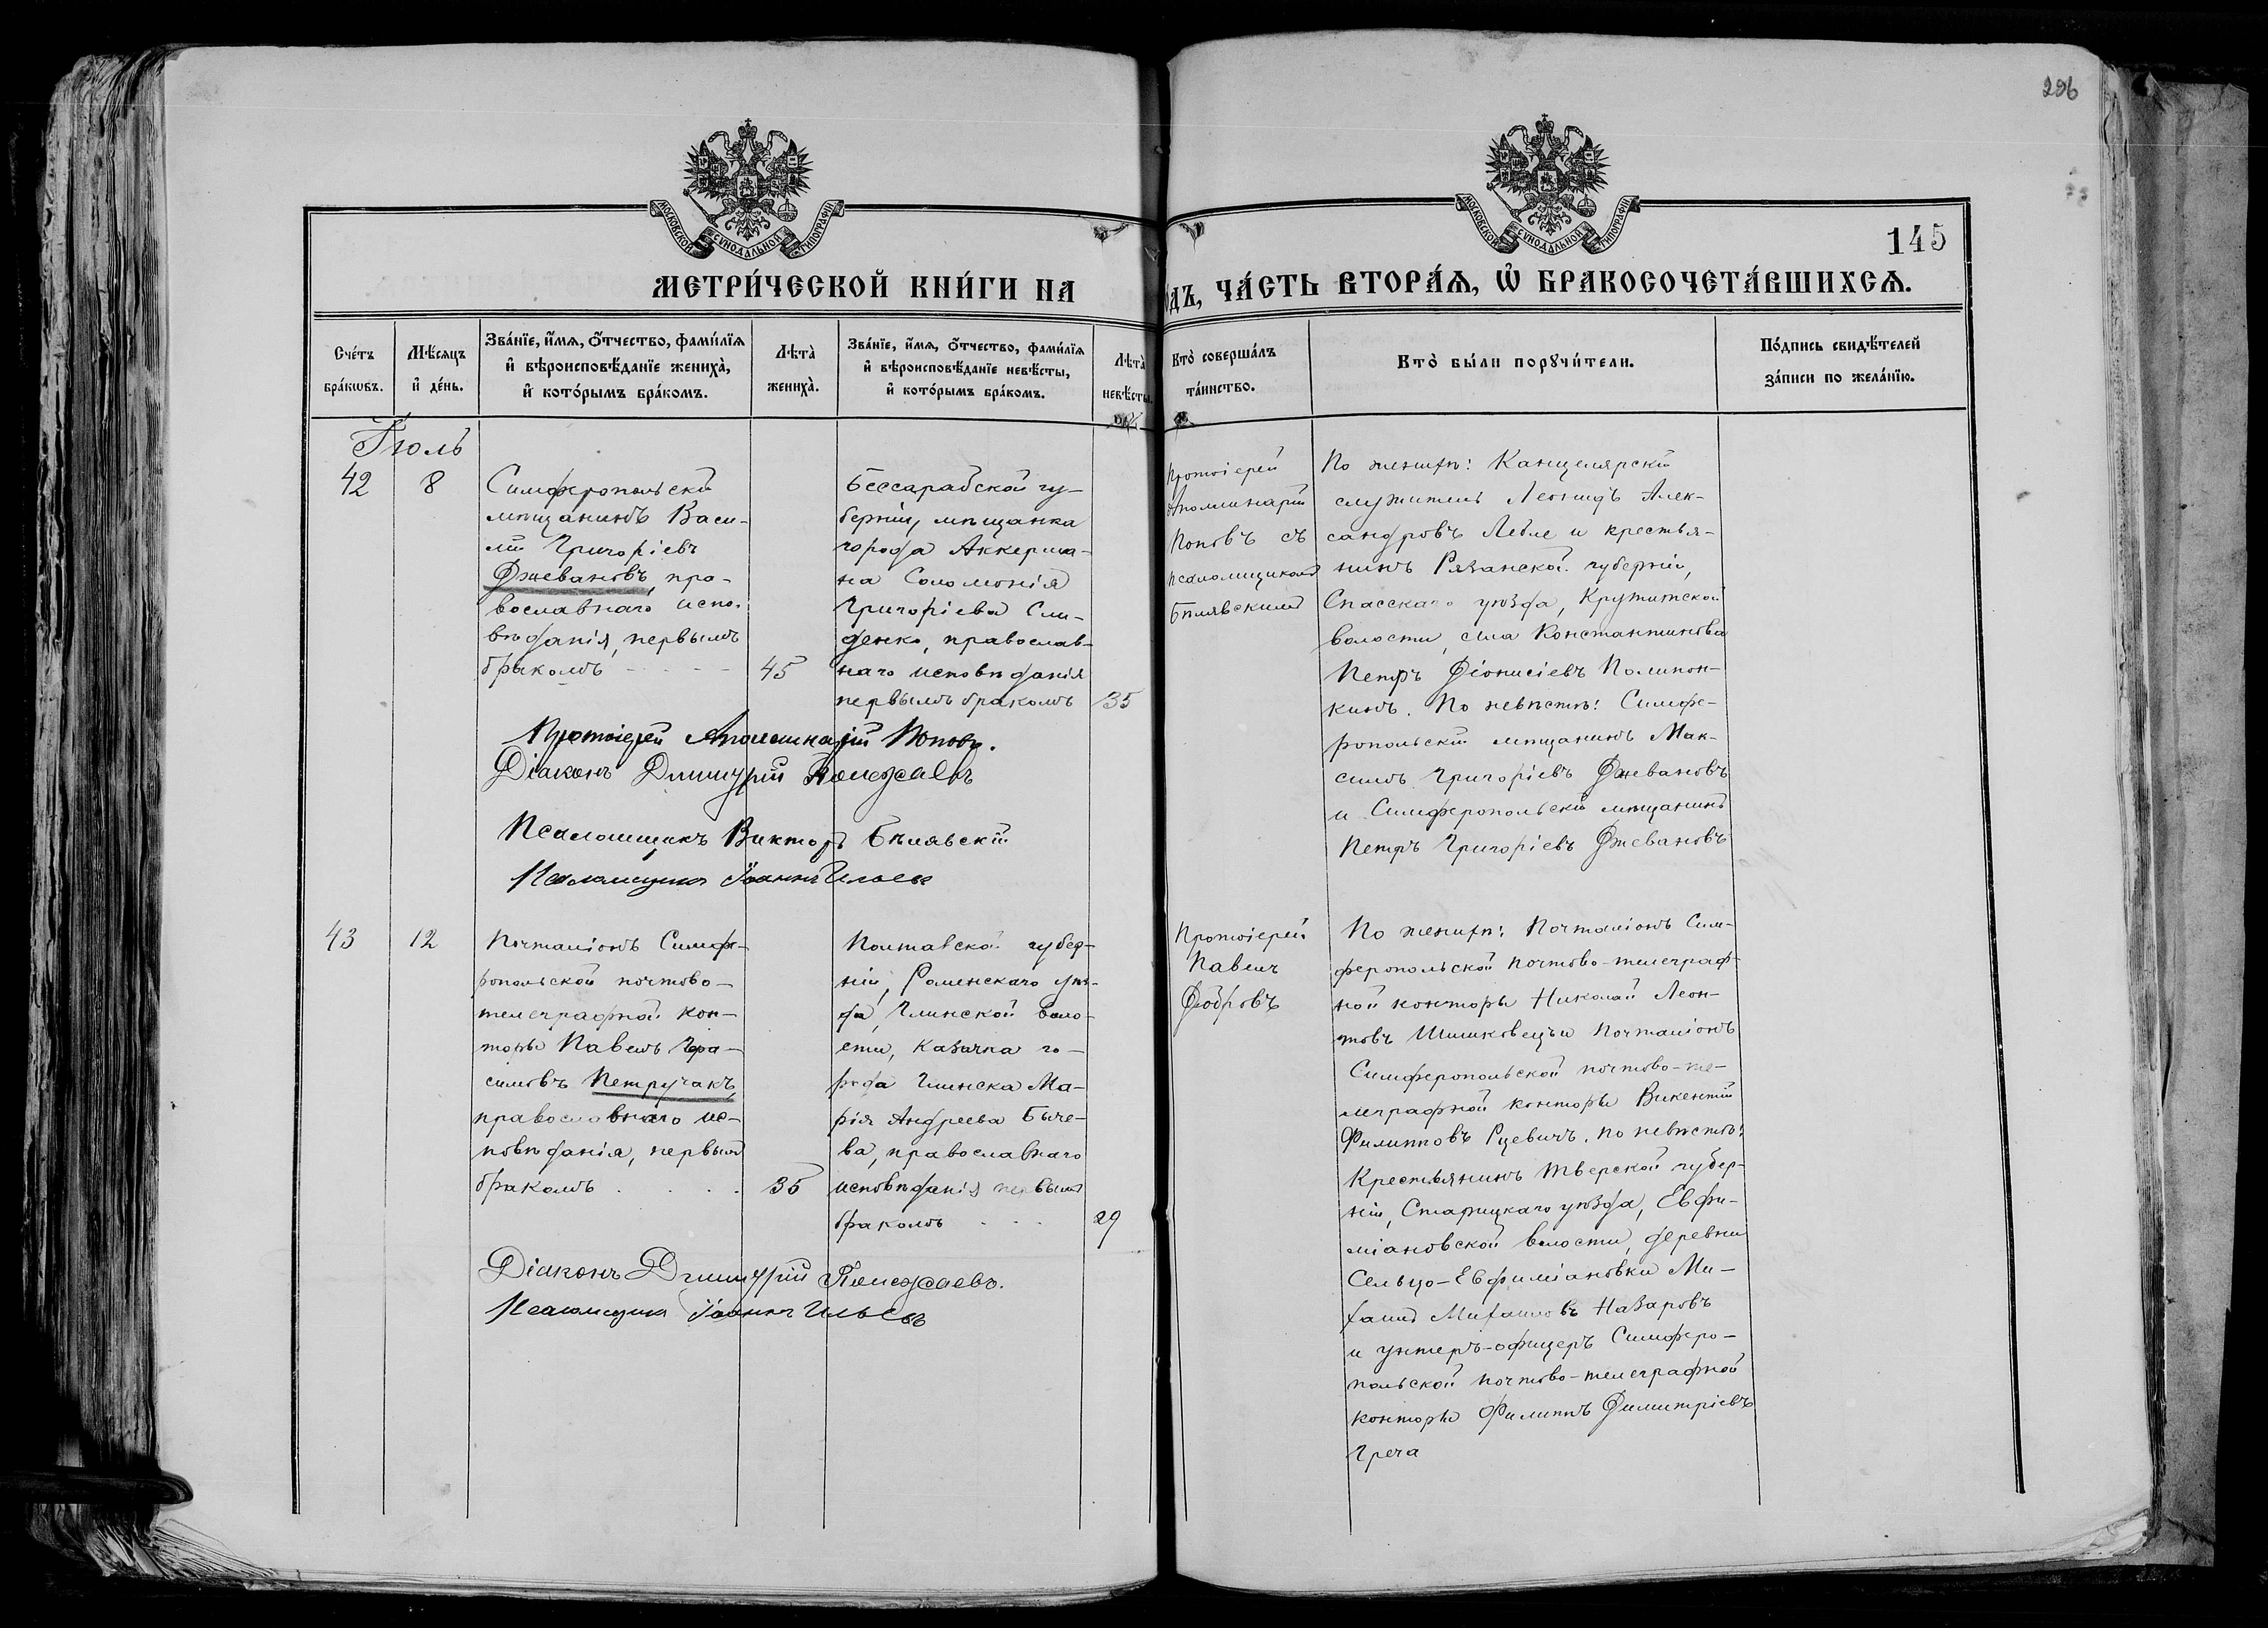 296
МОСКОВСКОЙ СѴНОДАЛЬНОЙ ТИПОГРАФІИ
МОСКОВСКОЙ СѴНОДАЛЬНОЙ ТИПОГРАФІИ
145
МЕТРИ́ЧЕСКОЙ КНИ́ГИ НА
ОДЪ, ЧА́СТЬ ВТОРА́Ѧ, Ѡ҆ БРАКОСОЧЕТА́ВШИХСѦ.
Сче́тъ бра́кѡвъ.
Мѣ́сѧцъ и҆ де́нь.
Зва́нїе, и҆́мѧ, ѻ҆́тчество, фами́лїѧ и҆ вѣроисповѣ́данїе жениха̀, и҆ кото́рымъ бра́комъ.
Лѣта̀ жениха̀.
Зва́нїе, и҆́мѧ, ѻ҆́тчество, фами́лїѧ и҆ вѣроисповѣ́данїе невѣ́сты, и҆ кото́рымъ бра́комъ.
Лѣта̀ невѣ́сты.
Кто̀ соверша́лъ та́инство.
Кто̀ бы́ли порꙋчи́тели.
По́дпись свидѣ́телей за́писи по жела́нїю.
Іюль
42
8
Симферопольскій
мѣщанинъ Васи-
лій Григоріевъ
Джевановъ, пра-
вославнаго испо-
вѣданія, первымъ
бракомъ
45
Бессарабской гу-
берніи, мѣщанка
города Аккерма-
на Соломонія
Григоріева Сли-
денко, православ-
наго исповѣданія
первымъ бракомъ
35
Протоіерей
Аполлинарій
Поповъ съ
псаломщикомъ
Бѣлявскимъ
По женихѣ: Канцелярскій
служитель Леонидъ Алек-
сандровъ Лебле и крестья-
нинъ Рязанской губерніи,
Спасскаго уѣзда, Крутитской
волости, села Константинова
Петръ Діонисіевъ Полипон-
кинъ. По невѣстѣ: Симфе-
ропольскій мѣщанинъ Мак-
симъ Григоріевъ Джевановъ
и Симферопольскій мѣщанинъ
Петръ Григоріевъ Джевановъ
Протоіерей Аполлинарій Поповъ.
Діаконъ Димитрій Полежаевъ
Псаломщикъ Викторъ Бѣлявскій
Псаломщикъ Іоаннъ Ильевъ
43
12
Почталіонъ Симфе-
ропольской почтово-
телеграфной кон-
торы Павелъ Гера-
симовъ Петручакъ,
православнаго ис-
повѣданія, первымъ
бракомъ
35
Полтавской губер-
ніи, Роменскаго уѣз-
да, Глинской воло-
сти, казачка го-
рода Глинска Ма-
рія Андреева Быче-
ва, православнаго
исповѣданія первымъ
бракомъ
29
Протоіерей
Павелъ
Добровъ
По женихѣ: Почталіонъ Сим-
феропольской почтово-телеграф-
ной конторы Николай Леон-
товъ Шишковецъ и почталіонъ
Симферопольской почтово-те-
леграфной конторы Викентій
Филипповъ Рцевичъ. По невѣстѣ:
Крестьянинъ Тверской губер-
ніи, Старицкаго уѣзда, Евфи-
міановской волости, деревни
Сельцо-Евфиміановки Ми-
хаилъ Михаиловъ Назаровъ
и унтеръ-офицеръ Симферо-
польской почтово-телеграфной
конторы Филиппъ Димитріевъ
Греча
Діаконъ Димитрій Полежаевъ.
Псаломщикъ Іоаннъ Ильевъ